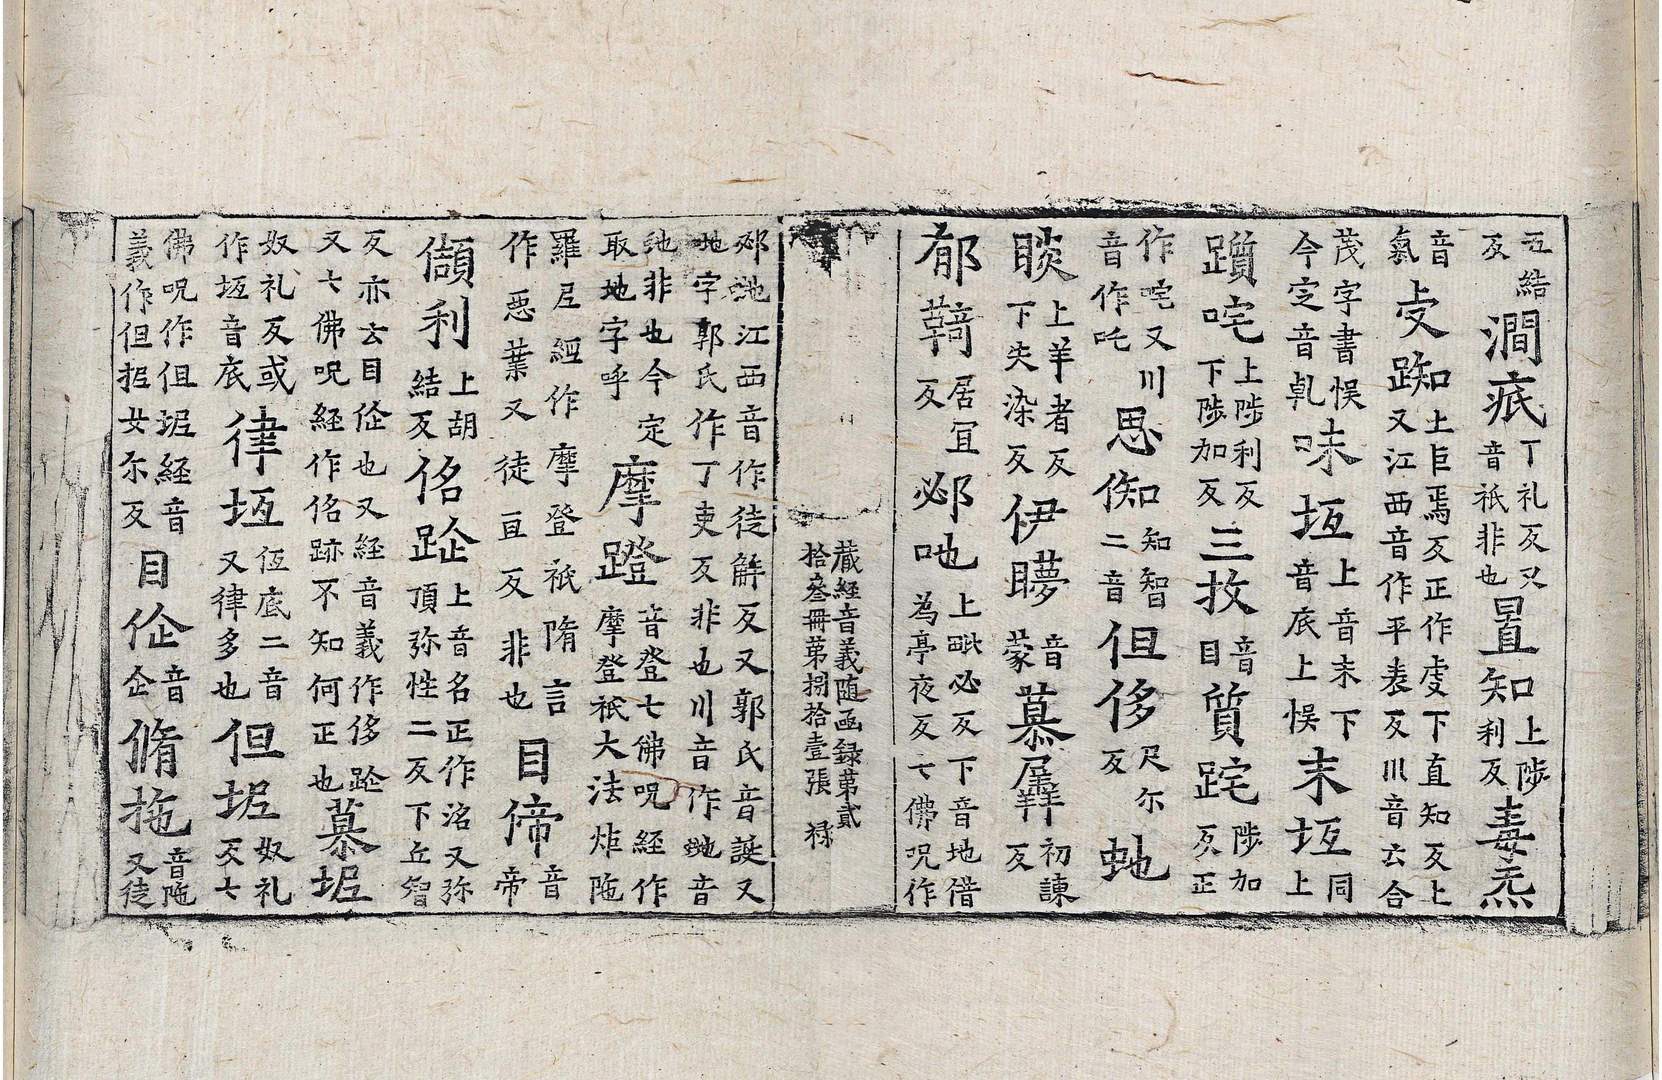 五結反澗疷丁礼反又音祇非也㫷知上陟知利反毒炁
音氣䖍踟上巨焉反正作虔下直知反上又江西音作平表反川音云合
茂字書悞今定音軋味㘫上音末下音底上悞末㘫同上
躓咤上陟利反下陟加反三抆音目質跎陟加反正
作咤又川音作吒思𠊷知智二音但侈尺尔反虵
睒上羊者反下失染反伊矇音蒙慕羼初諫反
郁䩭居冝反邲吔上毗必反下音地借為亭夜反七佛呪作
藏經音義随函録第貳拾叁冊第捌拾壹張 禄
邲吔江西音作徒解反又郭氏音誕又吔字郭氏作丁吏反非也川音作吔音
虵非也今定取地字呼摩蹬音登七佛呪經作摩登祇大法炬陁
羅尼經作摩登祇隋言作惡葉又徒亘反非也目偙音帝
儨利上胡結反佲跕上音名正作洺又弥頂弥性二反下丘智
反亦云目㑧也又經音義作侈跕又七佛呪經作佲跡不知何正也慕坭
奴礼反或作㘫音底律㘫伍底二音又律多也但坭奴礼反七
佛呪作伹坭經音義作但抳女尔反目㑧音企脩拖音陁又徒